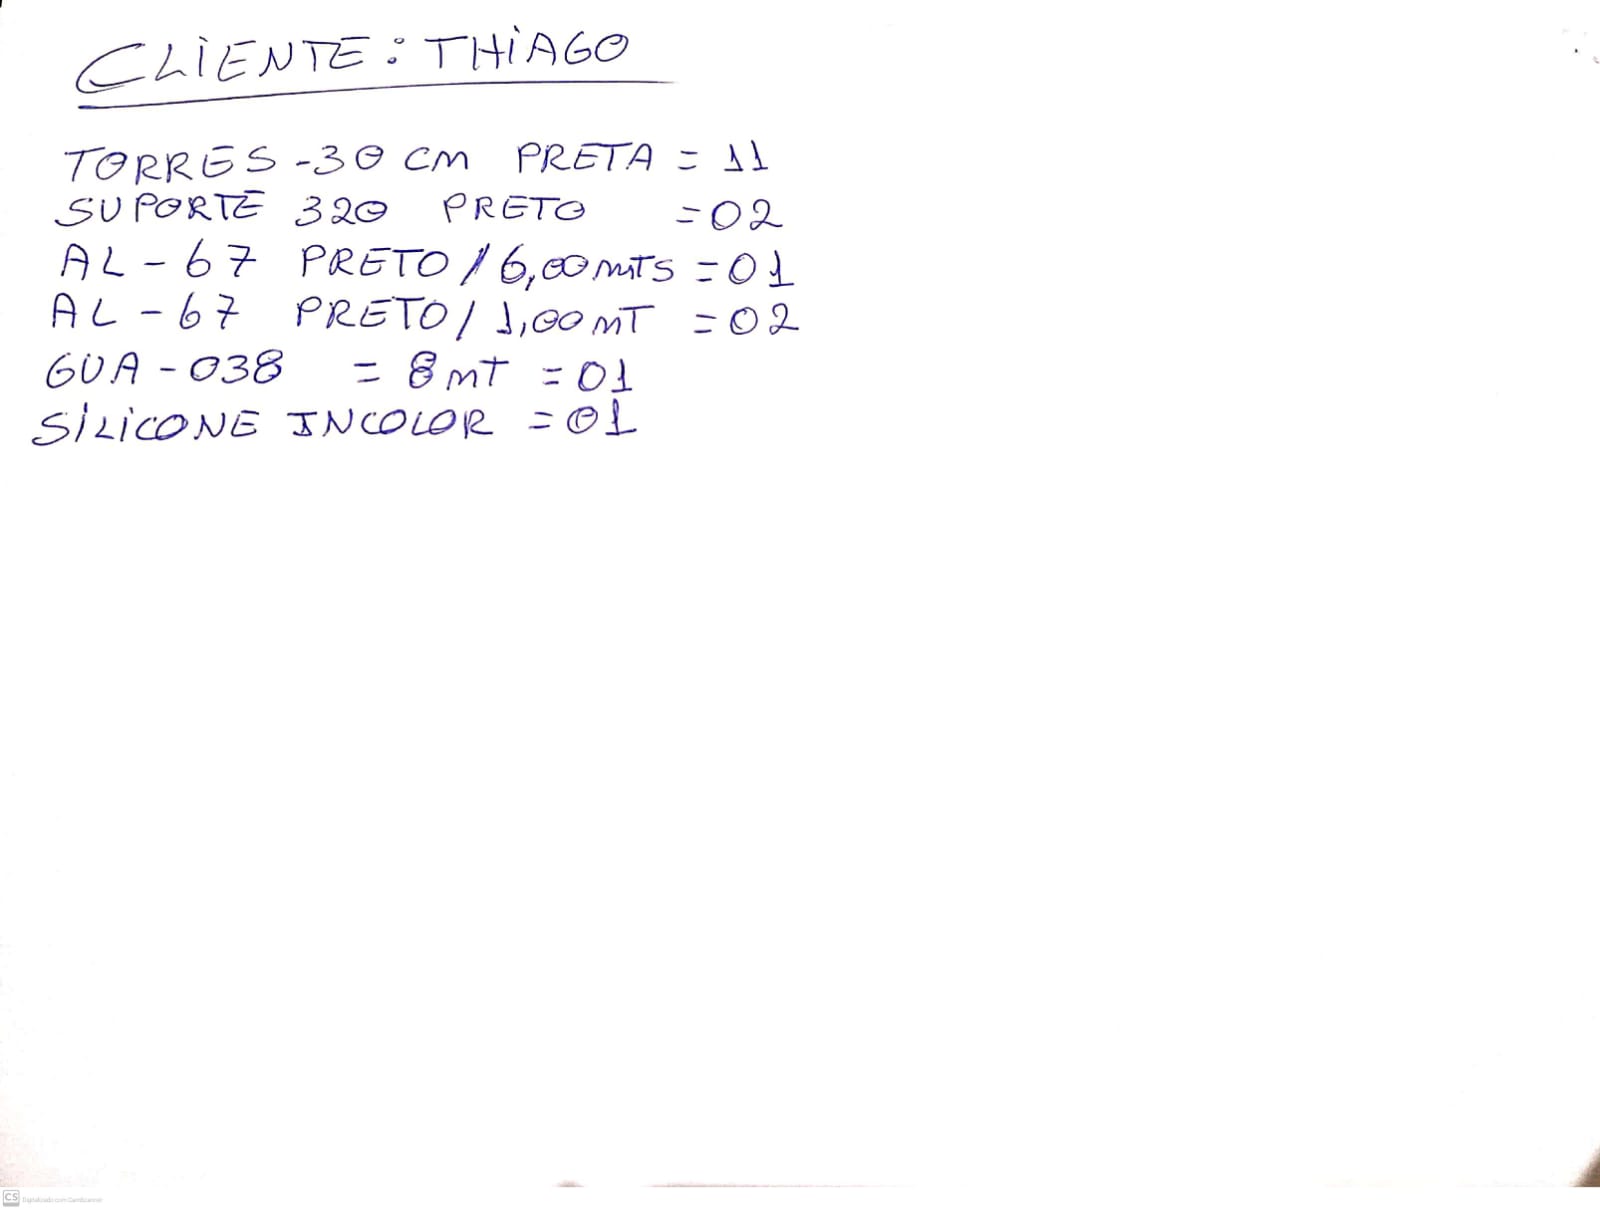 CLIENTE: THIAGO
TORRES -30 CM PRETA = 11
SUPORTE 320 PRETO =02
AL-67 PRETO / 6,00 mTS =01
AL-67 PRETO / 1,00 mT =02
GUA-038 = 8 mT =01
SILICONE INCOLOR =01
CS Digitalizado com CamScanner